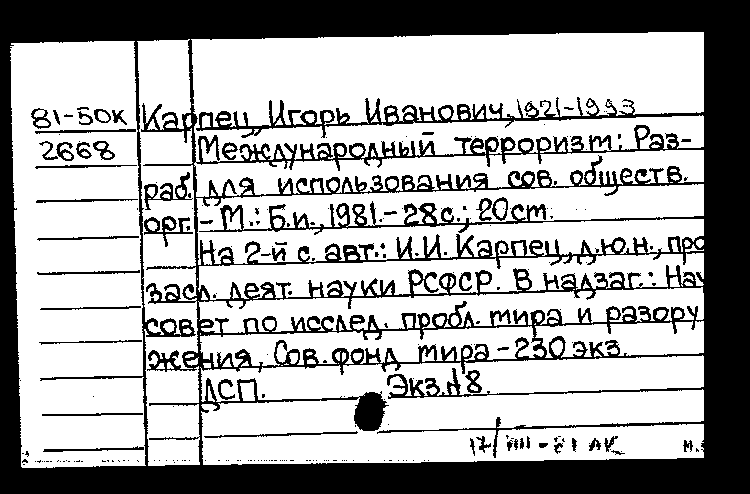 81-50к Карпец, Игорь Иванович, 1921-1993
2668 Международный терроризм: Раз-
раб. для использования сов. обществ.
орг. - М.: Б.и., 1981. - 28с.; 20ст.
На 2-й с. авт.: И.И. Карпец, д.ю.н., про
засл. деят. науки РСФСР. В надзаг.: Нау
совет по исслед. пробл. мира и разору
жения, Сов. фонд мира - 230 экз.
ДСП. Экз. №8.
17/VIII-81 АК